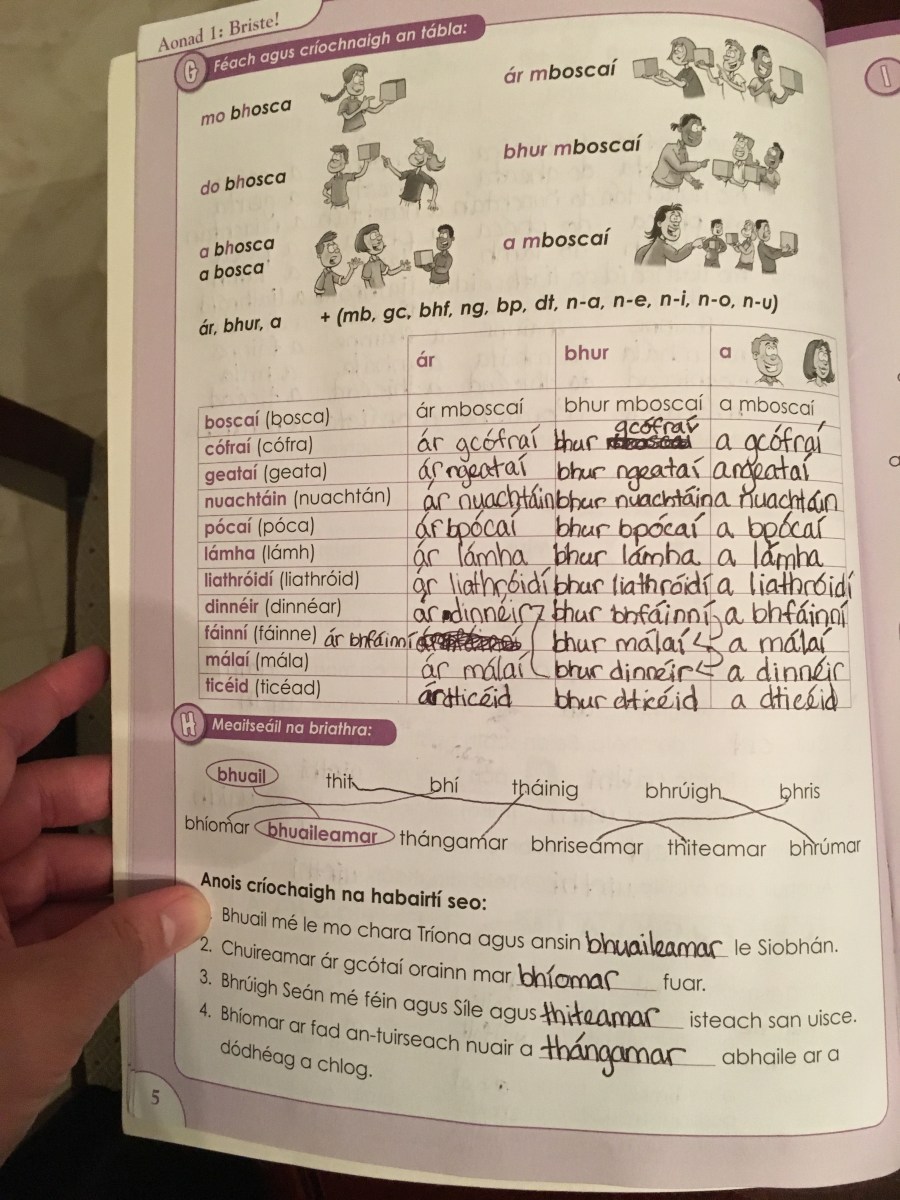 Aonad 1: Briste!
G Féach agus críochnaigh an tábla:
mo bhosca
ár mboscaí
do bhosca
bhur mboscaí
a bhosca
a bosca
a mboscaí
ár, bhur, a + (mb, gc, bhf, ng, bp, dt, n-a, n-e, n-i, n-o, n-u)
ár bhur a
boscaí (bosca) ár mboscaí bhur mboscaí a mboscaí
cófraí (cófra) ár gcófraí bhur gcófraí a gcófraí
geataí (geata) ár ngeataí bhur ngeataí a ngeataí
nuachtáin (nuachtán) ár nuachtáin bhur nuachtáin a nuachtáin
pócaí (póca) ár bpócaí bhur bpócaí a bpócaí
lámha (lámh) ár lámha bhur lámha a lámha
liathróidí (liathróid) ár liathróidí bhur liathróidí a liathróidí
dinnéir (dinnéar) ár dinnéir bhur bhfáinní a bhfáinní
fáinní (fáinne) ár bhfáinní bhur málaí a málaí
málaí (mála) ár málaí bhur dinnéir a dinnéir
ticéid (ticéad) ár dticéid bhur dticéid a dticéid
H Meaitseáil na briathra:
bhuail thit bhí tháinig bhrúigh bhris
bhíomar bhuaileamar thángamar bhriseamar thiteamar bhrúmar
Anois críochaigh na habairtí seo:
Bhuail mé le mo chara Tríona agus ansin bhuaileamar le Siobhán.
2. Chuireamar ár gcótaí orainn mar bhíomar fuar.
3. Bhrúigh Seán mé féin agus Síle agus thiteamar isteach san uisce.
4. Bhíomar ar fad an-tuirseach nuair a thángamar abhaile ar a
dódhéag a chlog.
5
I